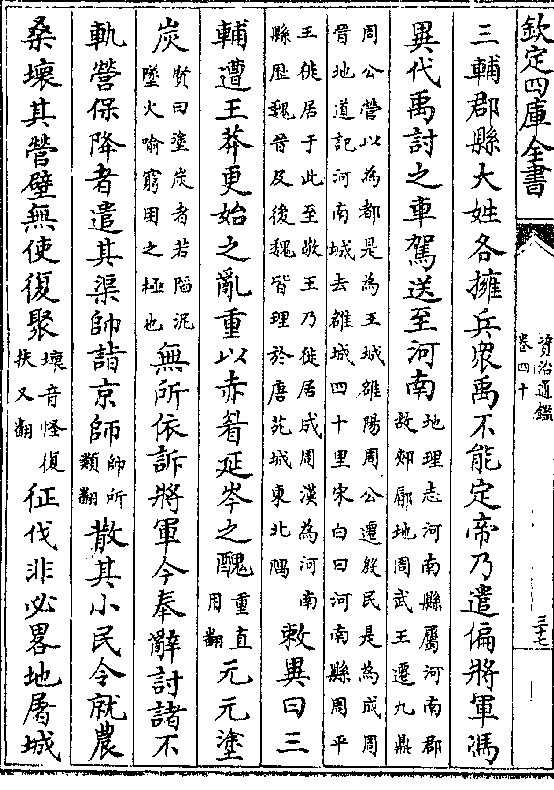 欽定四庫全書
資治通鑑
卷四十
三十七
三輔郡縣大姓各擁兵衆禹不能定帝乃遣偏將軍馮
異代禹討之車駕送至河南
地理志河南縣屬河南郡
故郟鄏地周武王遷九鼎
周公營以為都是為王城雒陽周公遷殷民是為成周
晉地道記河南城去雒城四十里宋白曰河南縣周平
王徙居于此至敬王乃徙居成周漢為河南
縣歴魏晉及後魏皆理於唐苑城東北隅
敕異曰三
輔遭王莽更始之亂重以赤眉延岑之醜
重直
用翻
元元塗
炭
賢曰塗炭者若陷泥
墜火喻窮困之極也
無所依訴將軍今奉辭討諸不
軌營保降者遣其渠帥詣京師
帥所
類翻
散其小民令就農
桑壞其營壁無使復聚
壞音怪復
扶又翻
征伐非必畧地屠城